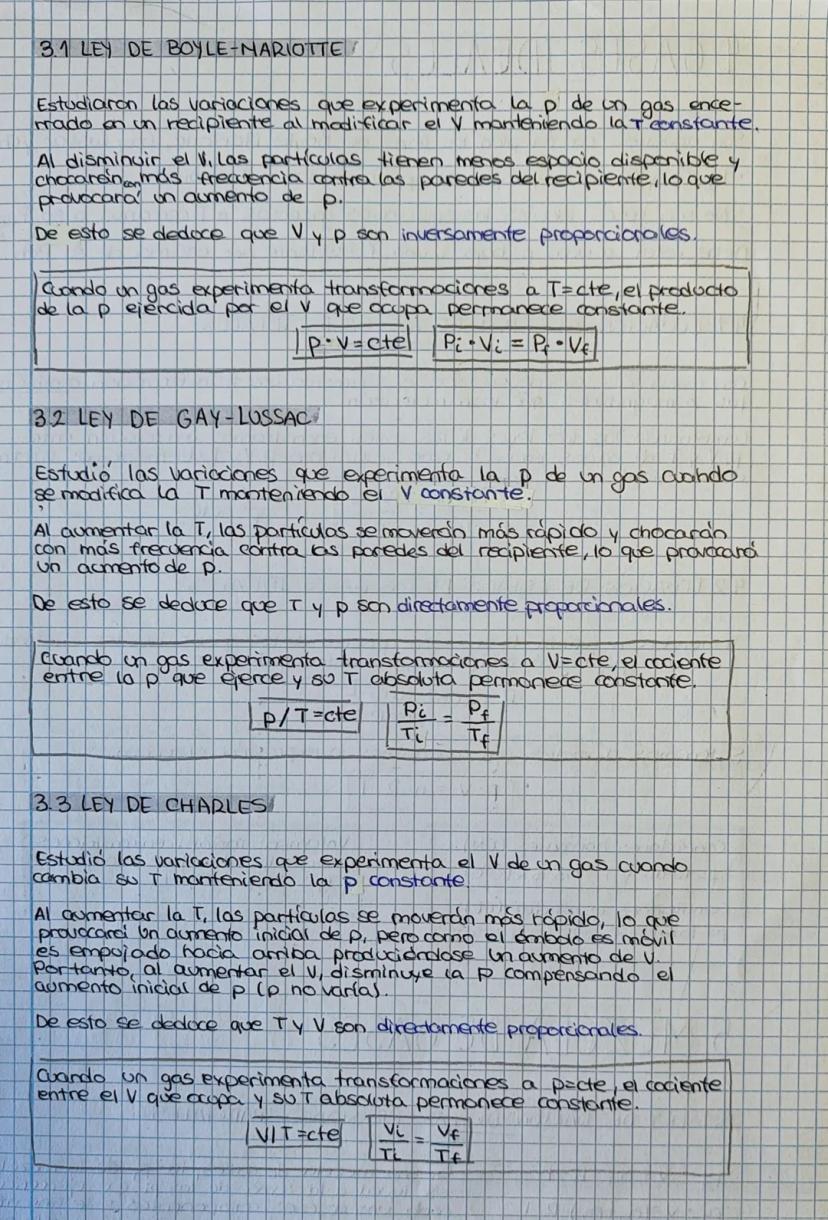 3.1 LEY DE BOYLE-MARIOTTE
Estudiaron las variaciones que experimenta la p de un gas ence-
rrado en un recipiente al modificar el V manteniendo la T constante.
Al disminuir el V, las partículas tienen menos espacio disponible y
chocarán con más frecuencia contra las paredes del recipiente, lo que
provocará un aumento de p.
De esto se deduce que V y p son inversamente proporcionales.
Cuando un gas experimenta transformaciones a T=cte, el producto
de la p ejercida por el V que ocupa permanece constante.
p·V=cte Pi·Vi = Pf·Vf
3.2 LEY DE GAY-LUSSAC
Estudió las variaciones que experimenta la p de un gas cuando
se modifica la T manteniendo el V constante.
Al aumentar la T, las partículas se moverán más rápido y chocarán
con más frecuencia contra las paredes del recipiente, lo que provocará
un aumento de p.
De esto se deduce que T y p son directamente proporcionales.
Cuando un gas experimenta transformaciones a V=cte, el cociente
entre la p que ejerce y su T absoluta permanece constante.
p/T=cte Pi/Ti = Pf/Tf
3.3 LEY DE CHARLES
Estudió las variaciones que experimenta el V de un gas cuando
cambia su T manteniendo la p constante.
Al aumentar la T, las partículas se moverán más rápido, lo que
provocará un aumento inicial de p, pero como el émbolo es móvil
es empujado hacia arriba produciéndose un aumento de V.
Portanto, al aumentar el V, disminuye la p compensando el
aumento inicial de p (p no varía).
De esto se deduce que T y V son directamente proporcionales.
Cuando un gas experimenta transformaciones a p=cte, el cociente
entre el V que ocupa y su T absoluta permanece constante.
V/T=cte Vi/Ti = Vf/Tf